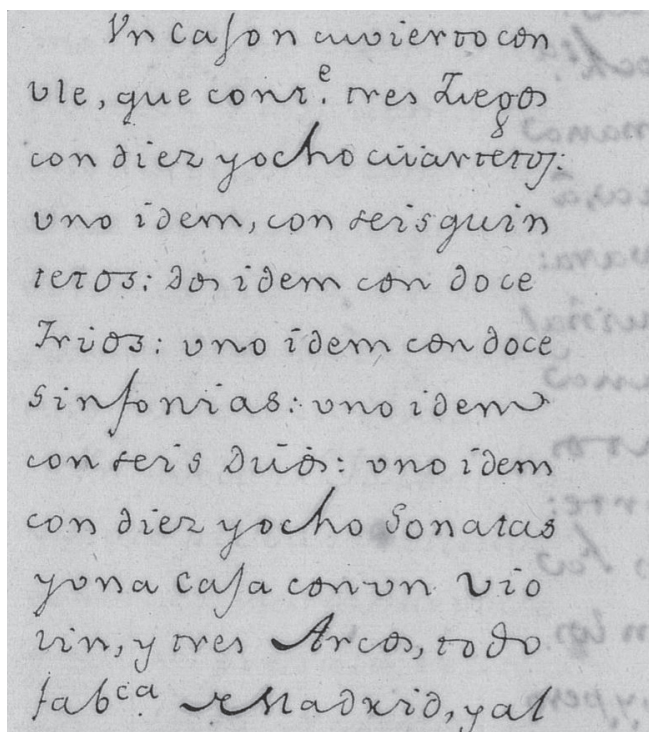 Vn Caſon cuvierto con
vle, que cont.e tres Juegos
con diez y ocho cuartetos:
vno idem, con seis quin
tetos: dos idem con doce
Trios: vno idem con doce
sinfonias: vno idem
con seis Dúos: vno idem
con diez y ocho Sonatas
y vna Caſa con vn Vio
lin, y tres Arcos, todo
fabca. Madrid, y al